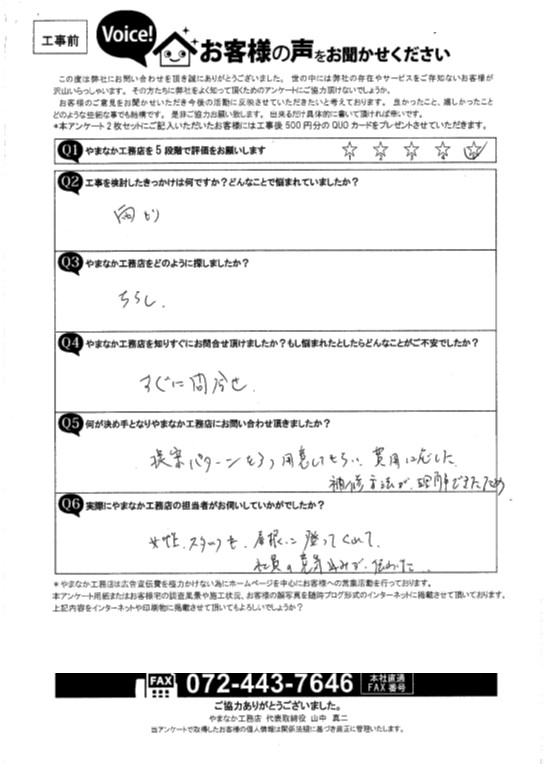 工事前
Voice!
お客様の声をお聞かせください
この度は弊社にお問い合わせを頂き誠にありがとうございました。世の中には弊社の存在やサービスをご存知ないお客様が
沢山いらっしゃいます。その方たちに弊社をよく知って頂くためのアンケートにご協力頂けないでしょうか。
お客様のご意見をお聞かせいただき今後の活動に反映させていただきたいと考えております。良かったこと、嬉しかったこと
どのような些細な事でも結構です。是非ご協力お願い致します。出来るだけ具体的に書いて頂ければ幸いです。
*本アンケート2枚セットにご記入いただいたお客様には工事後500円分のQUOカードをプレゼントさせていただきます。
Q1 やまなか工務店を5段階で評価をお願いします
1 2 3 4 5
Q2 工事を検討したきっかけは何ですか?どんなことで悩まれていましたか?
雨もり
Q3 やまなか工務店をどのように探しましたか?
ちらし.
Q4 やまなか工務店を知りすぐにお問合せ頂けましたか?もし悩まれたとしたらどんなことがご不安でしたか?
すぐに問合せ.
Q5 何が決め手となりやまなか工務店にお問い合わせ頂きましたか?
提案パターンを3つ用意してもらい、費用に応じた
補修方法が、理解できたため
Q6 実際にやまなか工務店の担当者がお伺いしていかがでしたか?
女性スタッフも、屋根に登ってくれて、
社員の意気込みが、伝わった.
*やまなか工務店は広告宣伝費を極力かけない為にホームページを中心にお客様への営業活動を行っております。
本アンケート用紙またはお客様宅の調査風景や施工状況、お客様の顔写真を随時ブログ形式のインターネットに掲載させて頂いております。
上記内容をインターネットや印刷物に掲載させて頂いてもよろしいでしょうか?
FAX 072-443-7646 本社直通
FAX番号
ご協力ありがとうございました。
やまなか工務店 代表取締役 山中 真二
当アンケートで取得したお客様の個人情報は関係法規に基づき厳正に管理いたします。